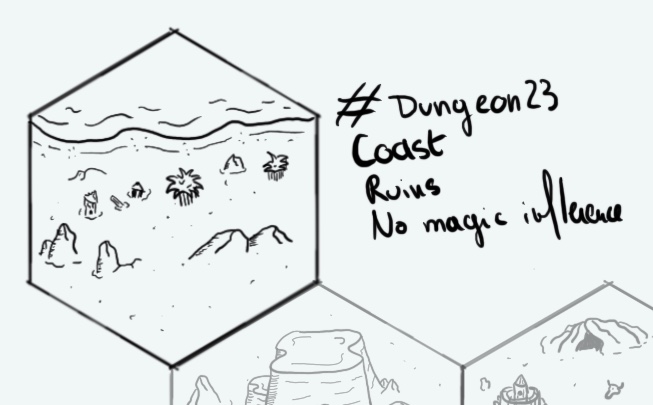 # Dungeon23
Coast
Ruins
No magic influence